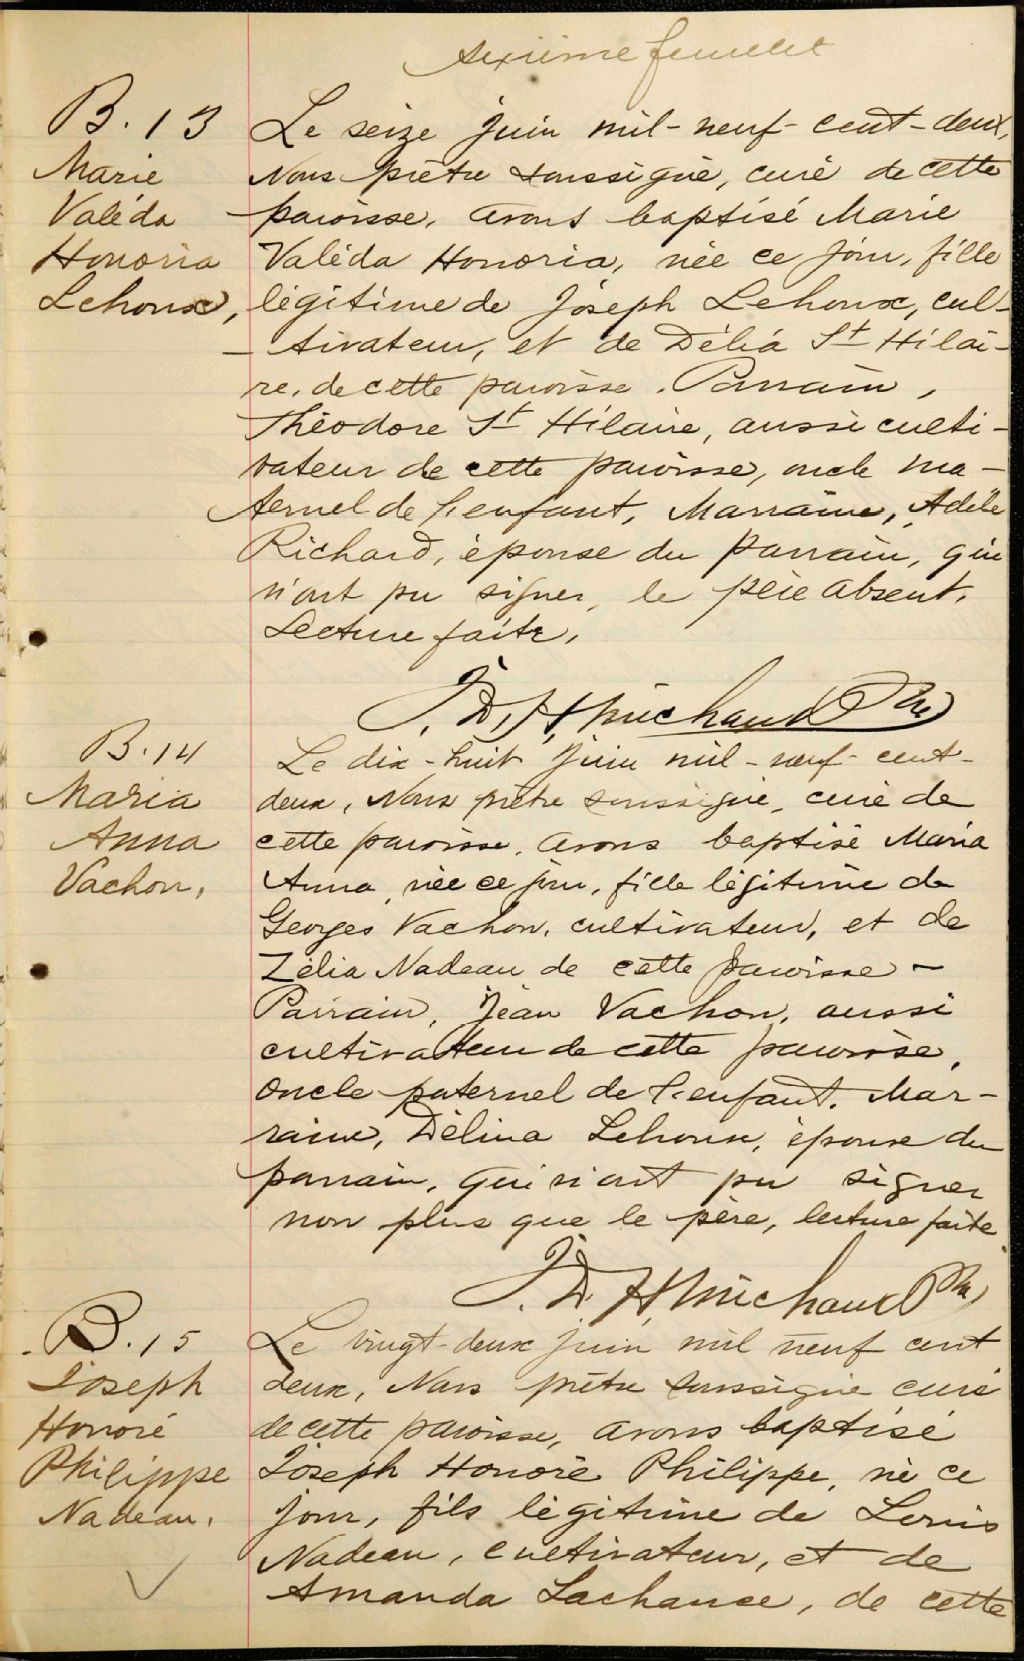 sixième feuillet
B. 13
Marie
Valéda
Honoria
Lehoux,
Le seize juin mil-neuf-cent-deux,
Nous prêtre soussigné, curé de cette
paroisse, avons baptisé Marie
Valéda Honoria, née ce jour, fille
légitime de Joseph Lehoux, cul-
- tivateur, et de Délia St Hilai-
re, de cette paroisse. Parrain,
Théodore St Hilaire, aussi culti-
vateur de cette paroisse, oncle ma-
ternel de l'enfant, Marraine, Adèle
Richard, épouse du parrain, qui
n'ont pu signer, le père absent.
Lecture faite,
J. D. H. Michaud Ptre
B. 14
Maria
Anna
Vachon,
Le dix-huit juin mil-neuf-cent-
deux, Nous prêtre soussigné, curé de
cette paroisse, avons baptisé Maria
Anna, née ce jour, fille légitime de
Georges Vachon, cultivateur, et de
Zélia Nadeau de cette paroisse -
Parrain, Jean Vachon, aussi
cultivateur de cette paroisse,
oncle paternel de l'enfant. Mar-
raine, Délina Lehoux, épouse du
parrain, qui n'ont pu signer
non plus que le père, lecture faite.
J. D. H. Michaud Ptre
B. 15
Joseph
Honoré
Philippe
Nadeau.
Le vingt-deux juin mil neuf cent
deux, Nous prêtre soussigné curé
de cette paroisse, avons baptisé
Joseph Honoré Philippe, né ce
jour, fils légitime de Louis
Nadeau, cultivateur, et de
Amanda Lachance, de cette